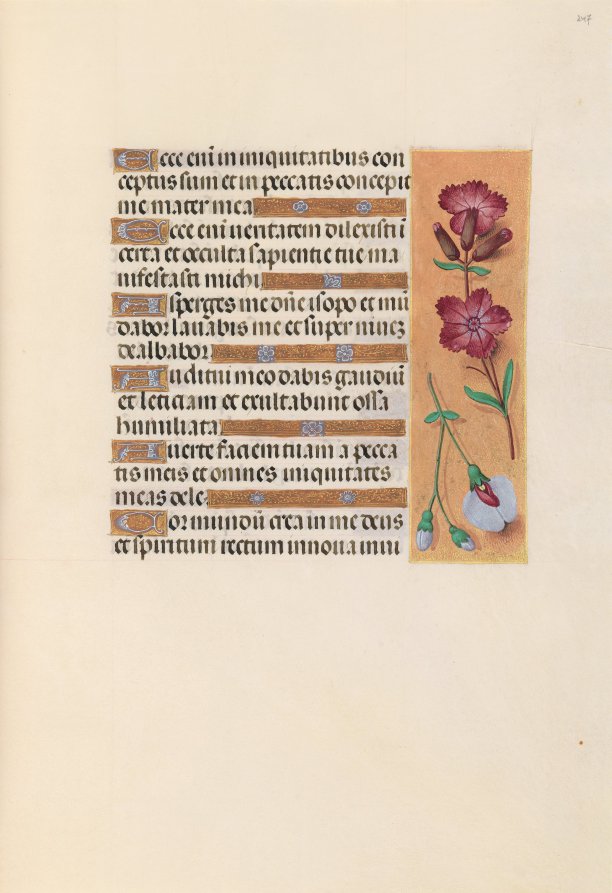 247
Ecce eni in iniquitatibus con
ceptus sum et in peccatis concepit
me mater mea
Ecce eni veritatem dilexisti i
certa et occulta sapientie tue ma
nifestasti michi
Asperges me dne isopo et mu
dabor lavabis me et super nivez
dealbabor
Auditui meo dabis gaudiu
et leticiam et exultabunt ossa
humiliata
Averte faciem tuam a pecca
tis meis et omnes iniquitates
meas dele
Cor mundu crea in me deus
et spiritum rectum innova in vi